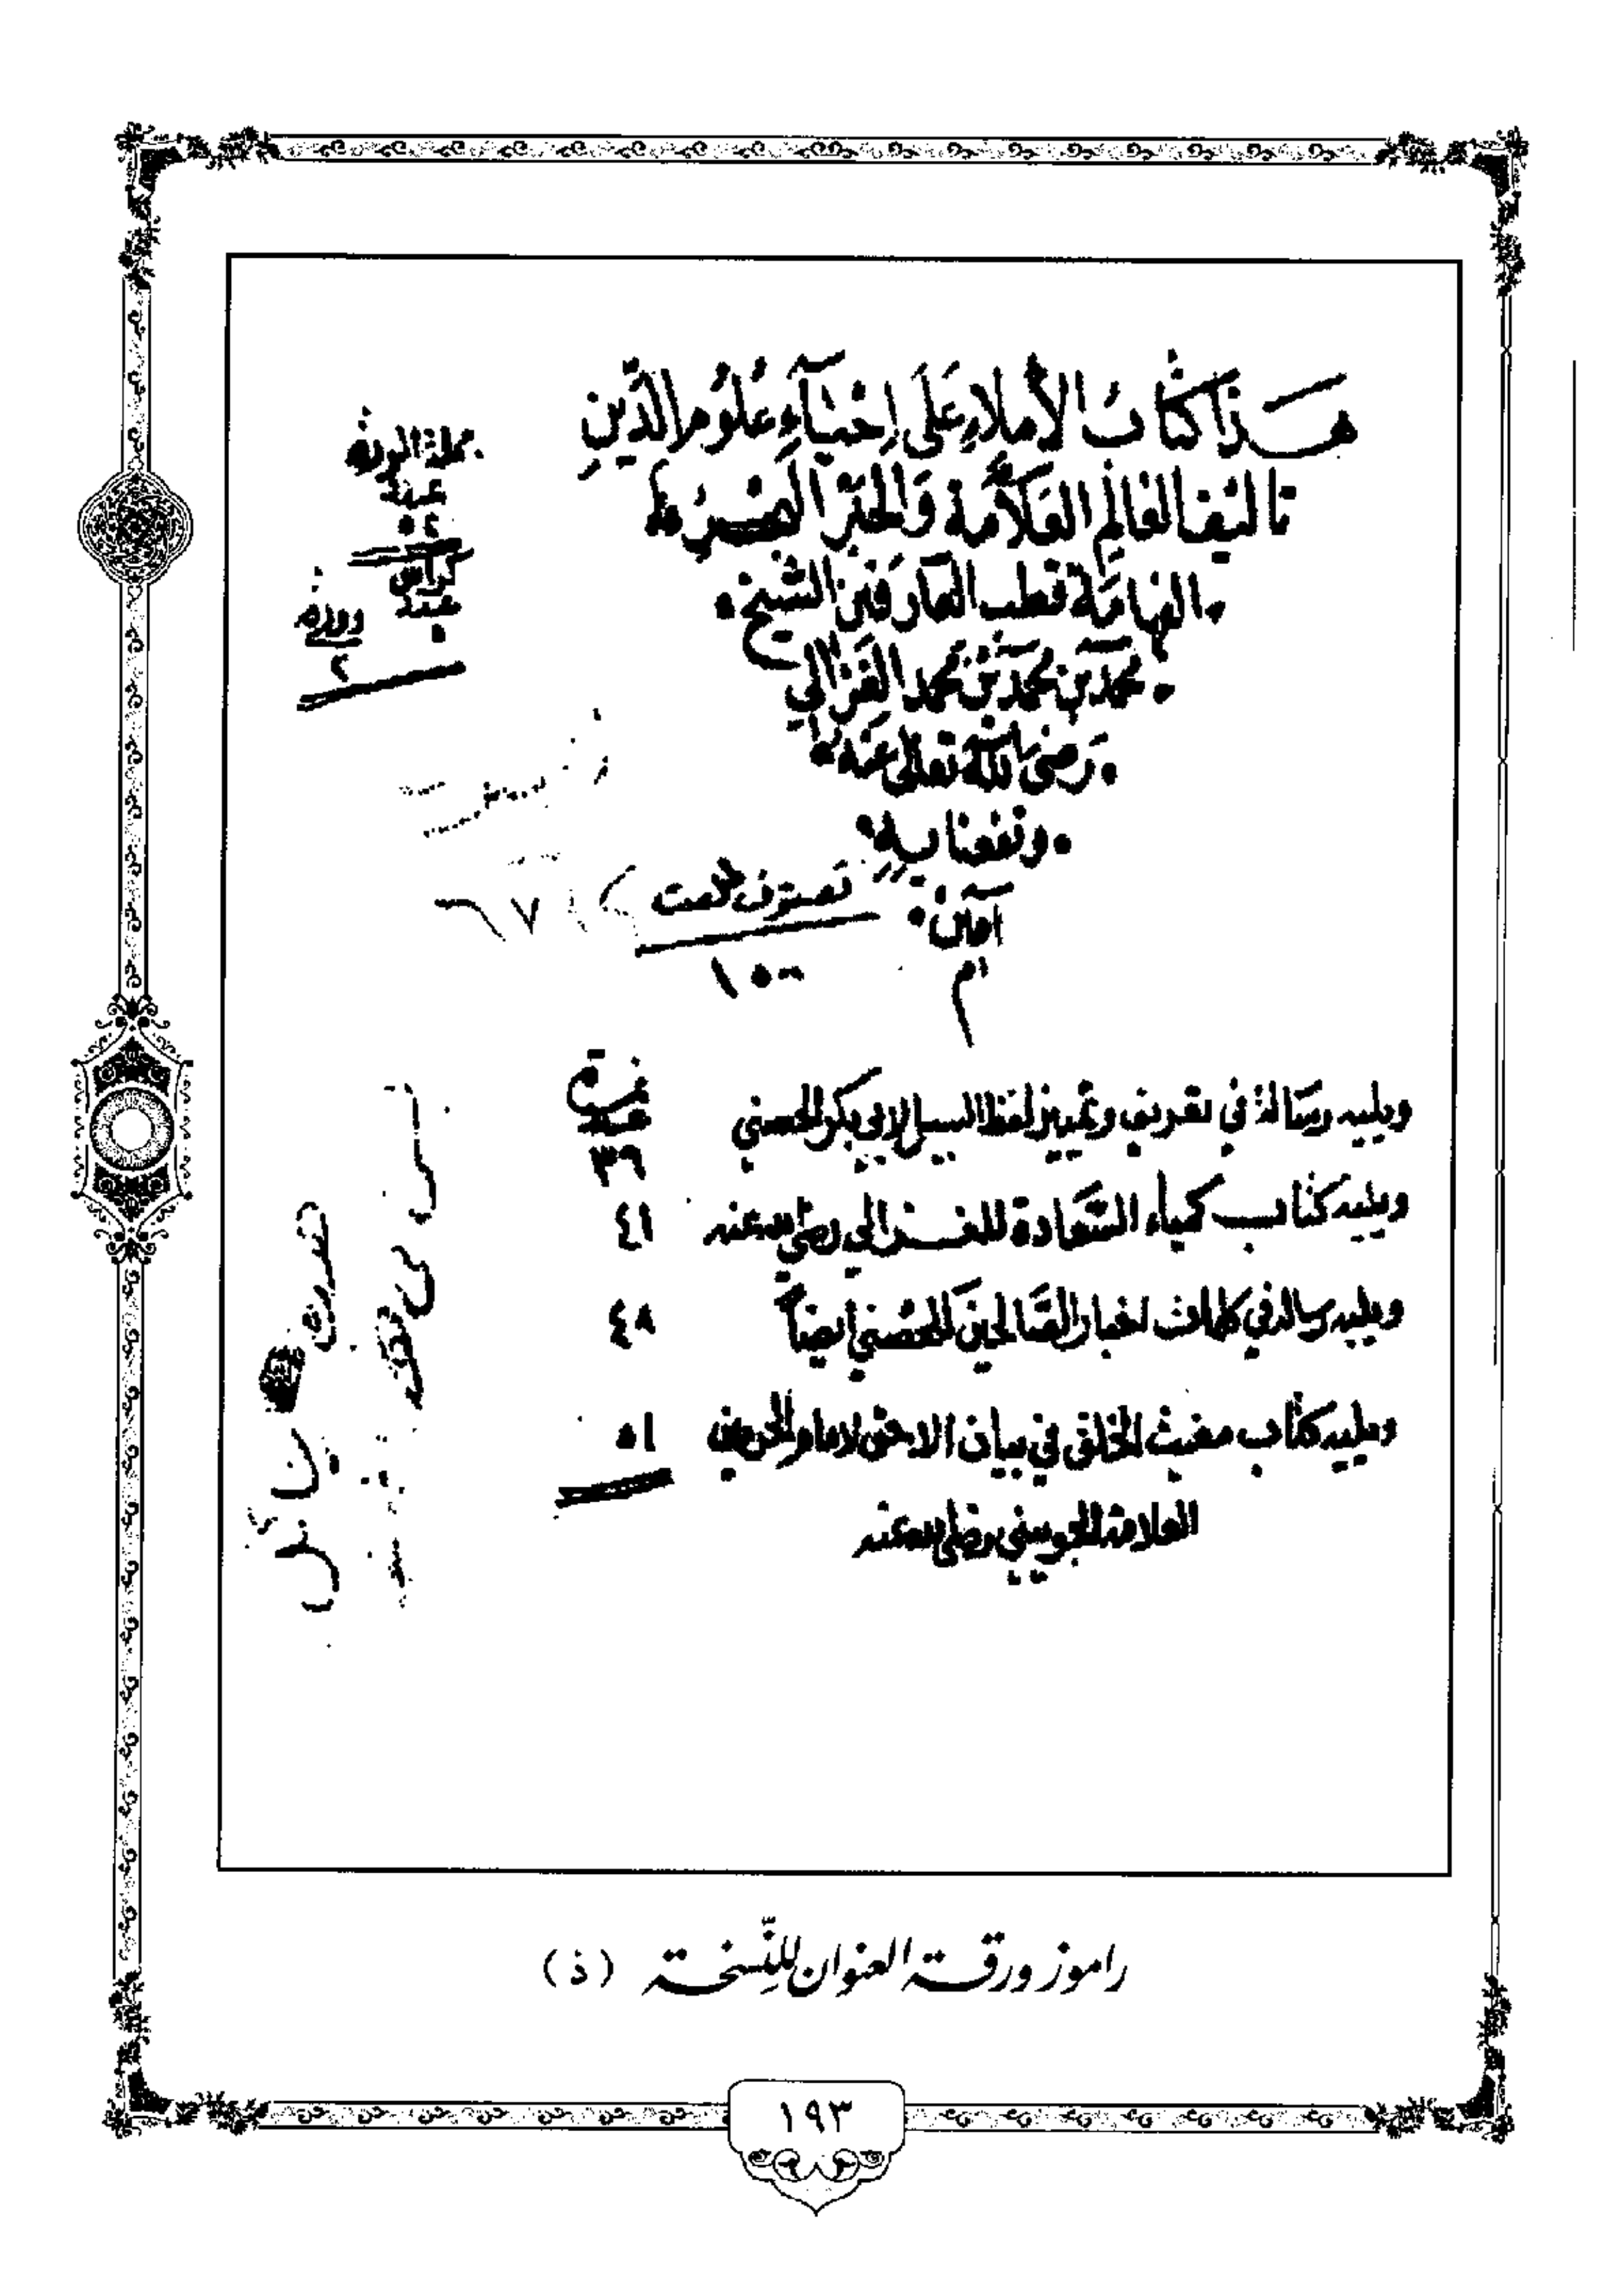 هذا كتاب الاملاء على احياء علوم الدين
تاليف العالم العلامة والحبر البحر
الفهامة قطب العارفين الشيخ
محمد بن محمد بن محمد الغزالي
رضي الله تعالى عنه
ونفعنا به
آمين
م
جملة الورق
عدد
٥٤
كراس
عدد
٥
وورق
٢
تصوف طلعت
١٥٠٠
ويليه رسالة في تعريف وتمييز لفظ السيد لابي بكر الحسني
عدد
٣٩
ويليه كتاب كيمياء السعادة للغزالي رضي الله عنه ٤١
ويليه رسالة في كلمات اخبار الصالحين للحصني ايضاً ٤٨
ويليه كتاب مغيث الخلق في بيان الاحق لامام الحرمين ٥١
العلامة الجويني رضي الله عنه
راموز ورقة العنوان للنّسخة (ذ)
١٩٣